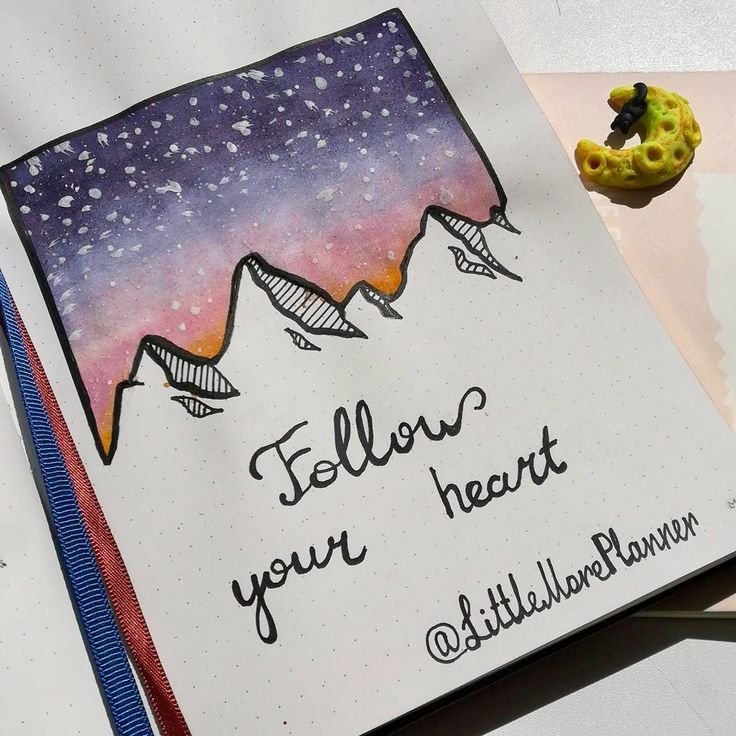 Follow
your heart
@LittleMorePlanner